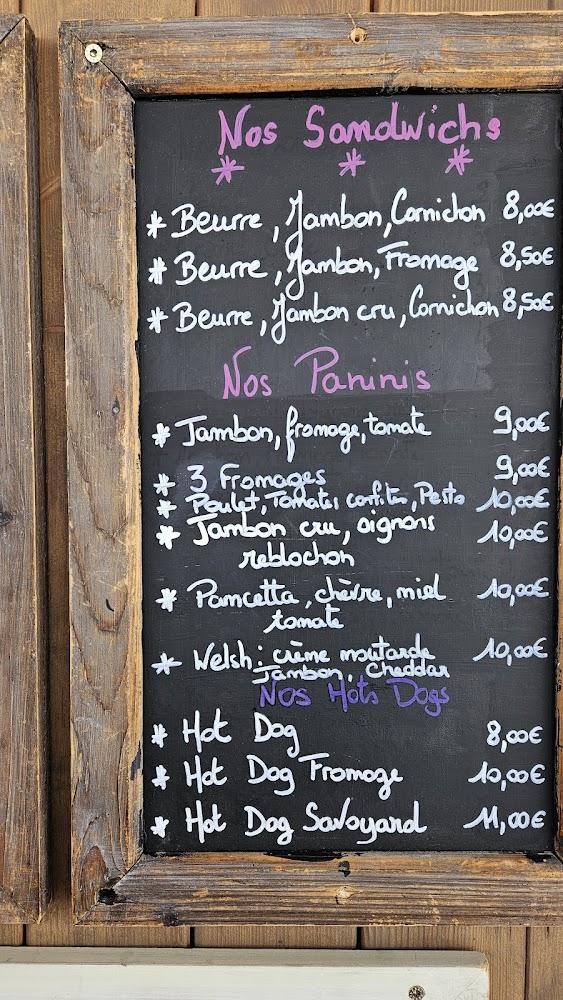 Nos Sandwichs
* Beurre, Jambon, Cornichon 8,00€
* Beurre, Jambon, Fromage 8,50€
* Beurre, Jambon cru, Cornichon 8,50€
Nos Paninis
* Jambon, fromage, tomate 9,00€
* 3 Fromages 9,00€
* Poulet, Tomates confites, Pesto 10,00€
* Jambon cru, oignons 10,00€
reblochon
* Pancetta, chèvre, miel 10,00€
tomate
* Welsh: crème moutarde 10,00€
Jambon, Cheddar
Nos Hots Dogs
* Hot Dog 8,00€
* Hot Dog Fromage 10,00€
* Hot Dog Savoyard 11,00€